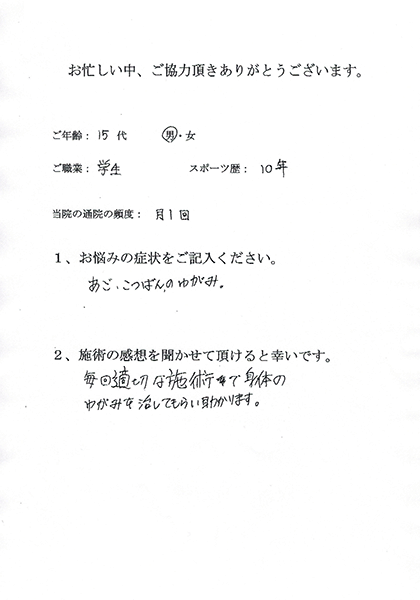 お忙しい中、ご協力頂きありがとうございます。
ご年齢： 15 代 男・女
ご職業： 学生 スポーツ歴： 10年
当院の通院の頻度： 月1回
１、お悩みの症状をご記入ください。
あご、こつばんのゆがみ。
２、施術の感想を聞かせて頂けると幸いです。
毎回適切な施術で身体の
ゆがみを治してもらい助かります。